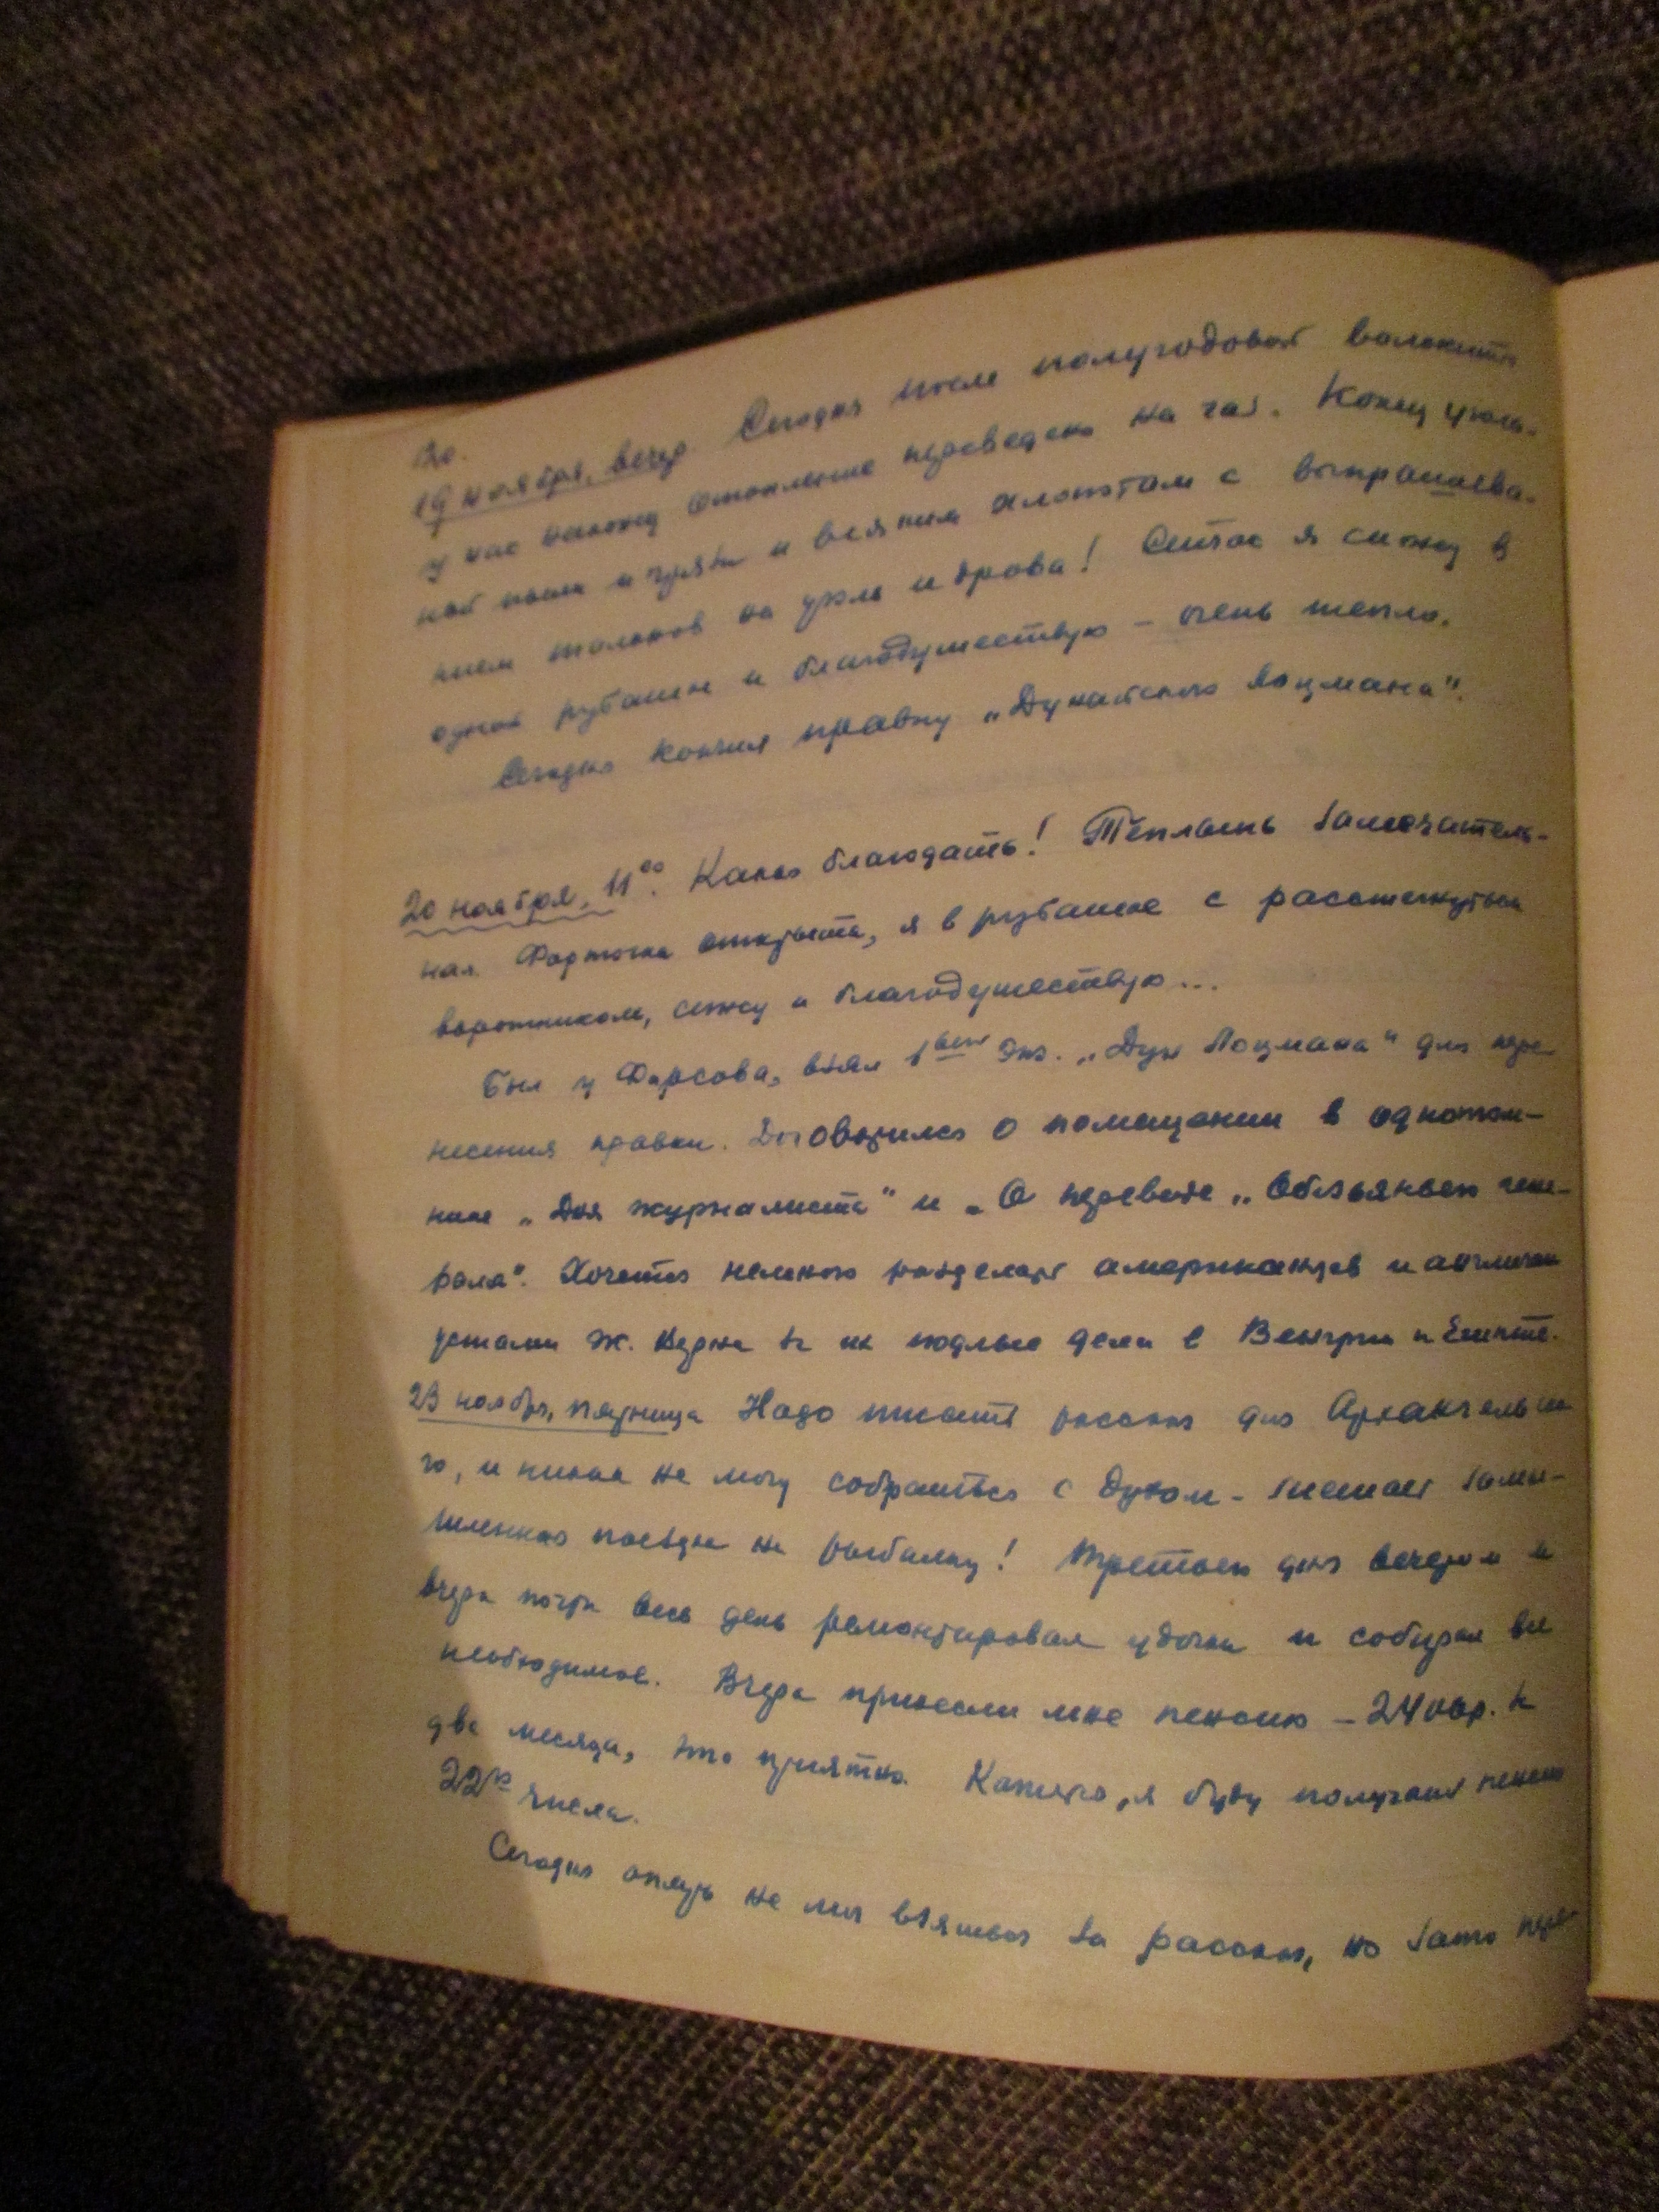 20.
19 ноября, вечер. Сегодня после полугодовой волокиты
у нас наконец отопление переведено на газ. Конец уголь-
ной пыли и грязи и всяким хлопотам с выпрашива-
нием талонов на уголь и дрова! Сейчас я сижу в
одной рубашке и благодушествую - очень тепло.
Сегодня кончил правку „Дунайского лоцмана".
20 ноября, 11⁰⁰. Какая благодать! Теплынь замечатель-
ная. Форточка открыта, я в рубашке с расстегнутым
воротником, сижу и благодушествую...
Был у Фирсова, взял 1 экз. „Дун. Лоцмана" для пере-
несения правки. Договорился о помещении в однотом-
нике „Дня журналиста" и „О переводе „Обезьяньего гене-
рала". Хочется немного разделать американцев и англичан
устами Ж. Верна за их подлые дела в Венгрии и Египте.
23 ноября, пятница Надо писать рассказ для Архангельско-
го, и никак не могу собраться с духом - мешает замы-
шленная поездка на рыбалку! Третьего дня вечером и
вчера почти весь день ремонтировал удочки и собирал все
необходимое. Вчера принесли мне пенсию - 2400р. за
два месяца, это приятно. Кажется, я буду получать пенсию
22го числа.
Сегодня опять не мог взяться за рассказ, но зато пере-